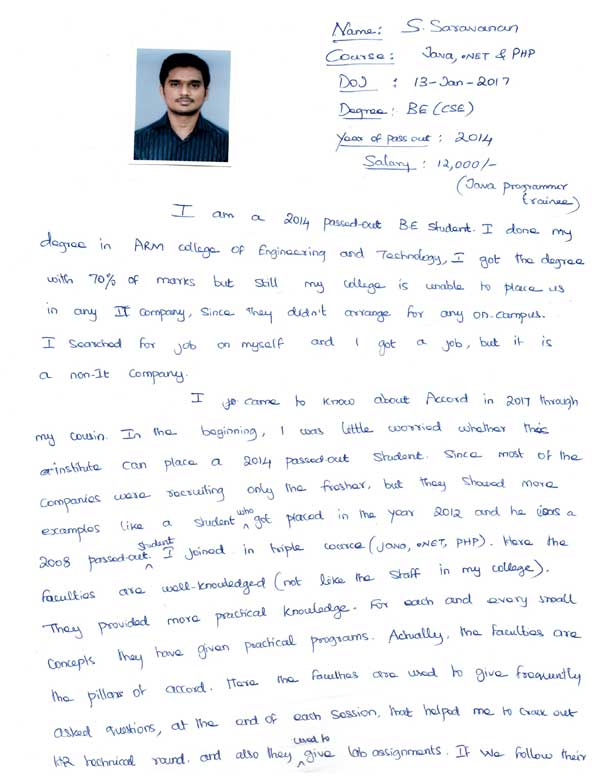 Name: S. Saravanan
Course: Java, .NET & PHP
DOJ : 13-Jan-2017
Degree: BE (CSE)
Year of pass out : 2014
Salary : 12,000/-
(Java programmer
trainee)
I am a 2014 passed-out BE student. I done my
degree in ARM college of Engineering and Technology, I got the degree
with 70% of marks but still my college is unable to place us
in any IT company, Since they didn't arrange for any on-campus.
I Searched for job on myself and I got a job, but it is
a non-It Company.
I came to know about Accord in 2017 through
my cousin. In the beginning, I was little worried whether this
institute can place a 2014 passed-out Student. Since most of the
Companies were recruiting only the fresher, but they Showed more
examples like a student who got placed in the year 2012 and he is a
2008 passed-out student. I joined in triple course (Java, .NET, PHP). Here the
faculties are well-knowledged (not like the Staff in my college).
They provided more practical knowledge. For each and every small
concepts they have given practical programs. Actually, the faculties are
the pillars of accord. Here the faculties are used to give frequently
asked qustions, at the end of each Session, that helped me to crack out
HR technical round. and also they used to give lab assignments. If we follow their